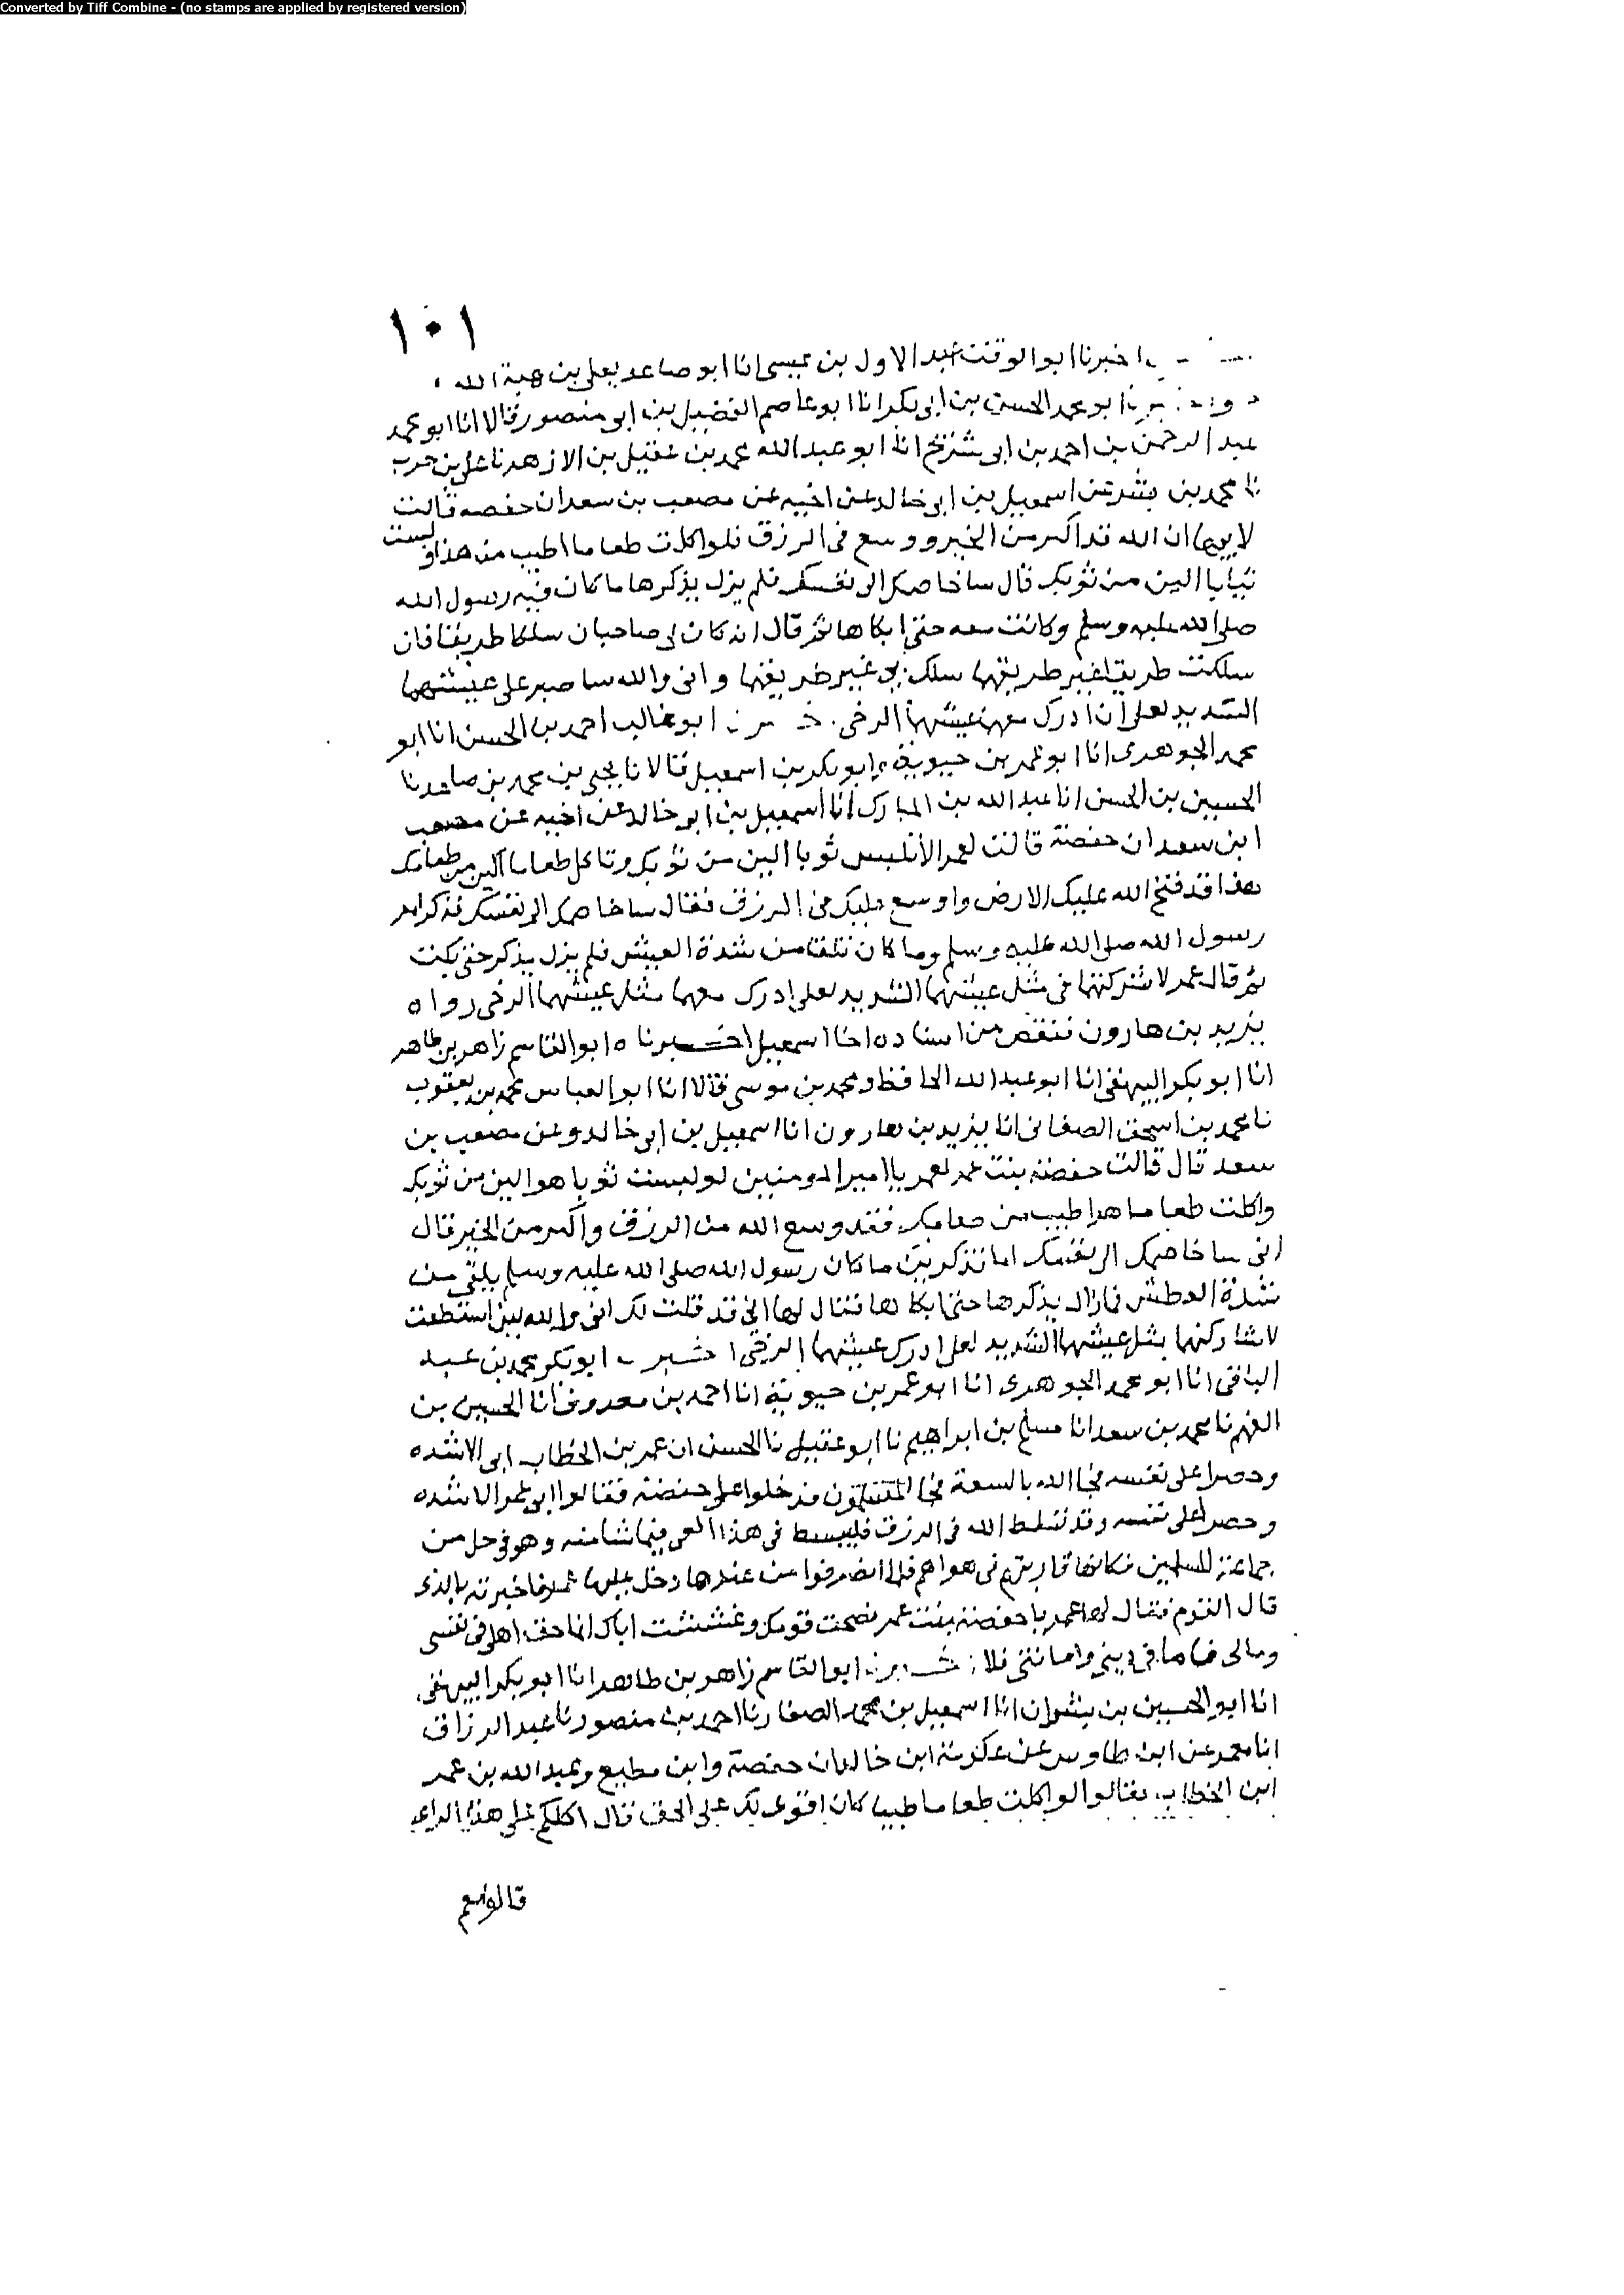 Converted by Tiff Combine - (no stamps are applied by registered version)
١٠١
اخبرنا ابو الوقت عبد الاول بن عيسى انا ابو صاعد يعلى بن هبة الله
ابو محمد الحسن بن ابى بكر انا ابو عاصم الفضيل بن ابى منصور قالا انا ابو محمد
عبد الرحمن بن احمد بن ابى شريح انا ابو عبد الله محمد بن عقيل بن الازهر نا على بن حرب
نا محمد بن بشر عن اسمعيل بن ابى خالد عن اخيه عن مصعب بن سعد ان حفصه قالت
لابيها ان الله قد اكثر من الخير ووسع فى الرزق فلو اكلت طعاما اطيب من هذا ولبست
ثيابا الين من ثوبك قال ساخاصمك الى نفسك فلم يزل يذكرها ما كان فيه رسول الله
صلى الله عليه وسلم وكانت معه حتى ابكاها ثم قال انه كان لى صاحبان سلكا طريقا فان
سلكت طريقا غير طريقهما سلك بى غير طريقهما وانى والله ساصبر على عيشتهما
الشديد لعلى ان ادرك معهما عيشتهما الرخى ابو غالب احمد بن الحسن انا ابو
محمد الجوهرى انا ابو عمر بن حيوية وابو بكر بن اسمعيل قالا نا يحيى بن محمد بن صاعد نا
الحسين بن الحسن انا عبد الله بن المبارك انا اسمعيل بن ابى خالد عن اخيه عن مصعب
ابن سعد ان حفصة قالت لعمر الا تلبس ثوبا الين من ثوبك وتاكل طعاما الين من طعامك
هذا قد فتح الله عليك الارض واوسع عليك فى الرزق فقال ساخاصمك الى نفسك فذكر امر
رسول الله صلى الله عليه وسلم وما كان تلقا من شدة العيش فلم يزل يذكر حتى بكت
ثم قال عمر لاشركنهما فى مثل عيشهما الشديد لعلى ادرك معهما مثل عيشهما الرخى رواه
يزيد بن هارون فنقص من اسناده اخا اسمعيل اخبرناه ابو القاسم زاهر بن طاهر
انا ابو بكر البيهقى انا ابو عبد الله الحافظ ومحمد بن موسى قالا انا ابو العباس محمد بن يعقوب
نا محمد بن اسحق الصغانى انا يزيد بن هارون انا اسمعيل بن ابى خالد وعن مصعب بن
سعد قال قالت حفصة بنت عمر لعمر يا امير المومنين لو لبست ثوبا هو الين من ثوبك
واكلت طعاما هو اطيب من طعامك فقد وسع الله من الرزق واكثر من الخير قال
انى ساخاصمك الى نفسك اما تذكرين ما كان رسول الله صلى الله عليه وسلم يلقى من
شدة العيش فما زال يذكرها حتى ابكاها فقال لها انى قد قلت لك انى والله لين استطعت
لاشاركنهما بمثل عيشهما الشديد لعلى ادرك عيشهما الرخى ابو بكر محمد بن عبد
الباقى انا ابو محمد الجوهرى انا ابو عمر بن حيوية انا احمد بن معروف انا الحسين بن
الفهم نا محمد بن سعد انا مسلم بن ابراهيم نا ابو عقيل نا الحسن ان عمر بن الخطاب ابى الا شده
وحصرا على نفسه فجا الله بالسعة فجا المسلمون فدخلوا على حفصة فقالوا ابى عمر الا شده
وحصرا على نفسه وقد بسط الله فى الرزق فليبسط فى هذا الفى فيما شا منه وهو فى حل من
جماعة المسلمين فكانها قاربتهم فى هواهم فلما انصرفوا من عندها دخل عليها عمر فاخبرته بالذى
قال القوم فقال لها عمر يا حفصة بنت عمر نصحت قومك وغششت اباك انما حق اهلى فى نفسى
ومالى فاما فى دينى وامانتى فلا ابو القاسم زاهر بن طاهر انا ابو بكر البيهقى
انا ابو الحسين بن بشران انا اسمعيل بن محمد الصفار نا احمد بن منصور نا عبد الرزاق
انا معمر عن ابن طاوس عن عكرمة ابن خالد ان حفصة وابن مطيع وعبد الله بن عمر
ابن الخطاب فقالوا لو اكلت طعاما طيبا كان اقوى لك على الحق قال اكلكم على هذا الراى
قالوا نعم